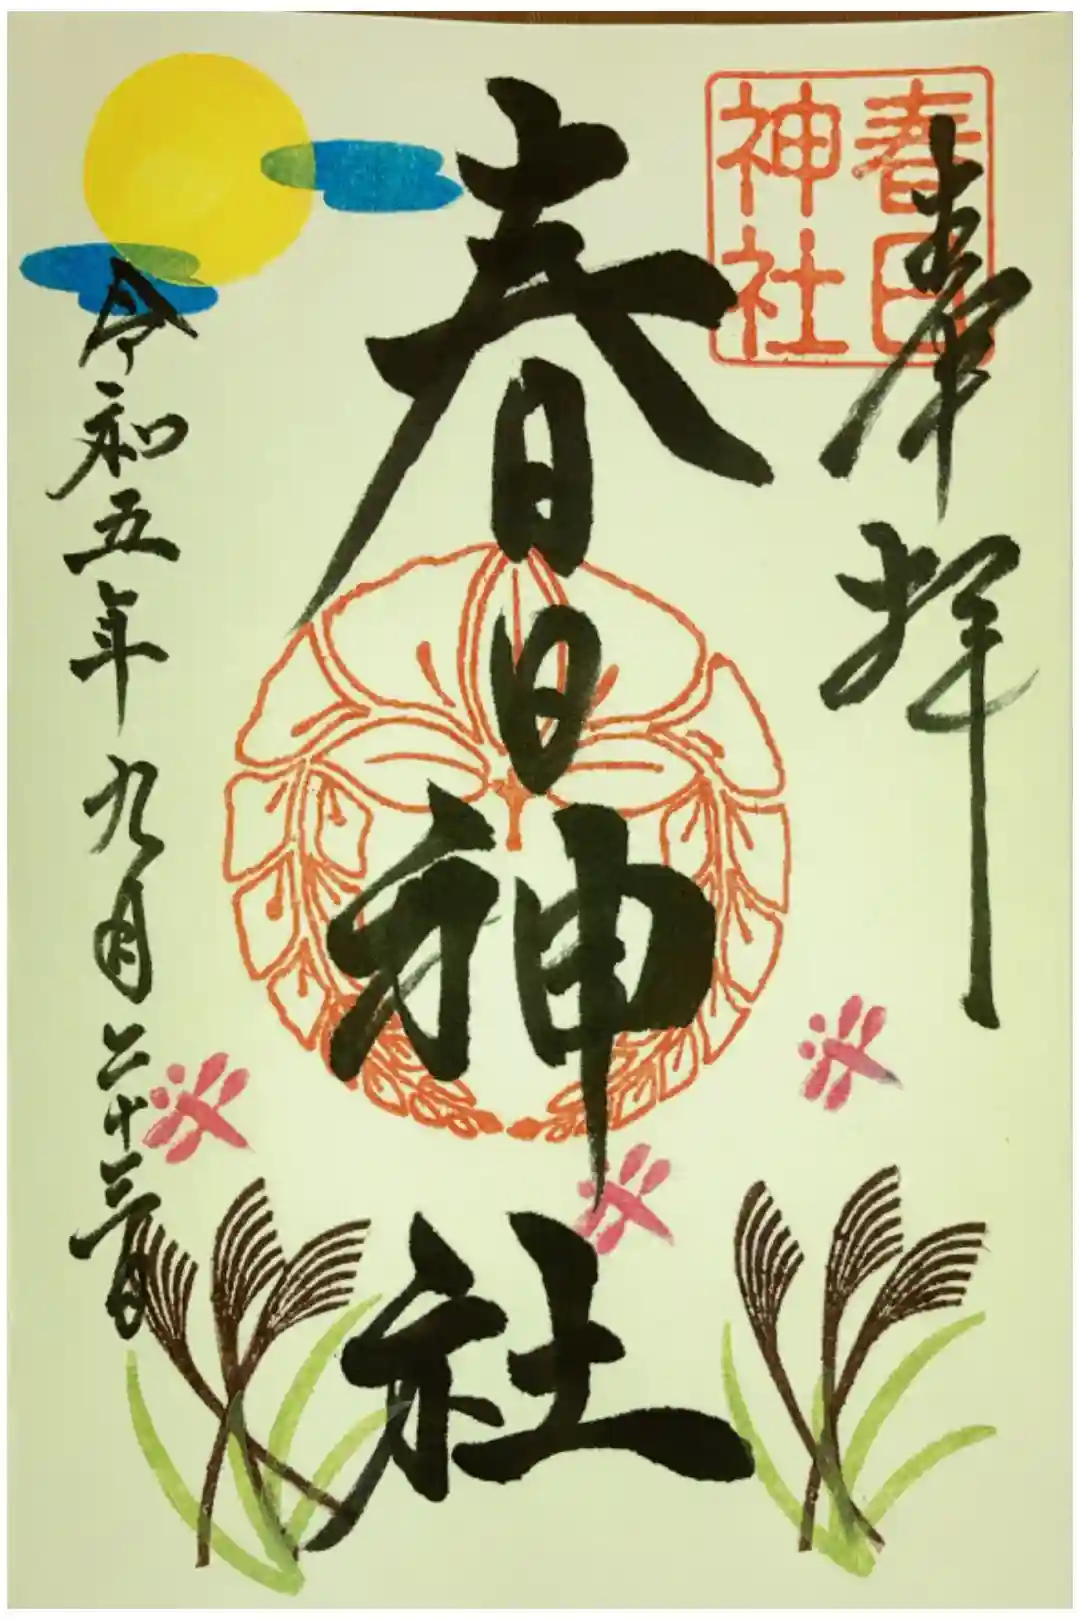 奉拝
春日神社
春日神社
令和五年九月二十三日